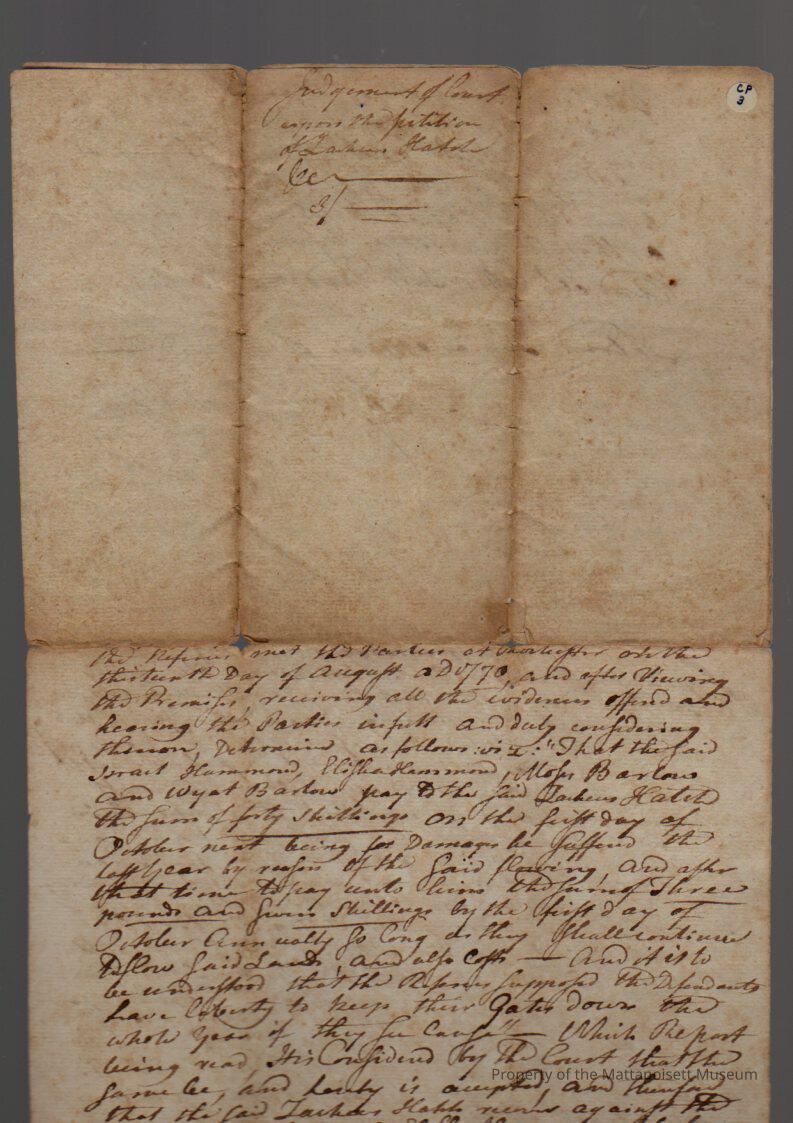 CP
3
Judgement of Court
upon the petition
of Zacheus Hatch
&c
3/
the Referies met the Parties at Rochester on the
thirteenth Day of August AD 1770, and after Viewing
the Premises, receiving all the evidences offerd and
hearing the Parties in full and duly considering
thereon, Determine as follows: viz: "That the said
Israel Hammond, Elisha Hammond, Moses Barlow
and Wyat Barlow pay to the said Zacheus Hatch
the sum of forty shillings on the first day of
October next being for Damages he sufferd the
last year by reason of the said flowing, and after
that time to pay unto him the sum of Three
pounds and seven shillings by the first day of
October Annually so long as they shall continue
to flow said Lands, and also Costs — And it is to
be understood that the Referees supposed the Defendants
have liberty to keep their Gates down the
whole year if they see cause" — Which Report
being read, It is Considered by the Court that the
same be, and hereby is accepted, and therefore
that the said Zacheus Hatch recover against the
Property of the Mattapoisett Museum